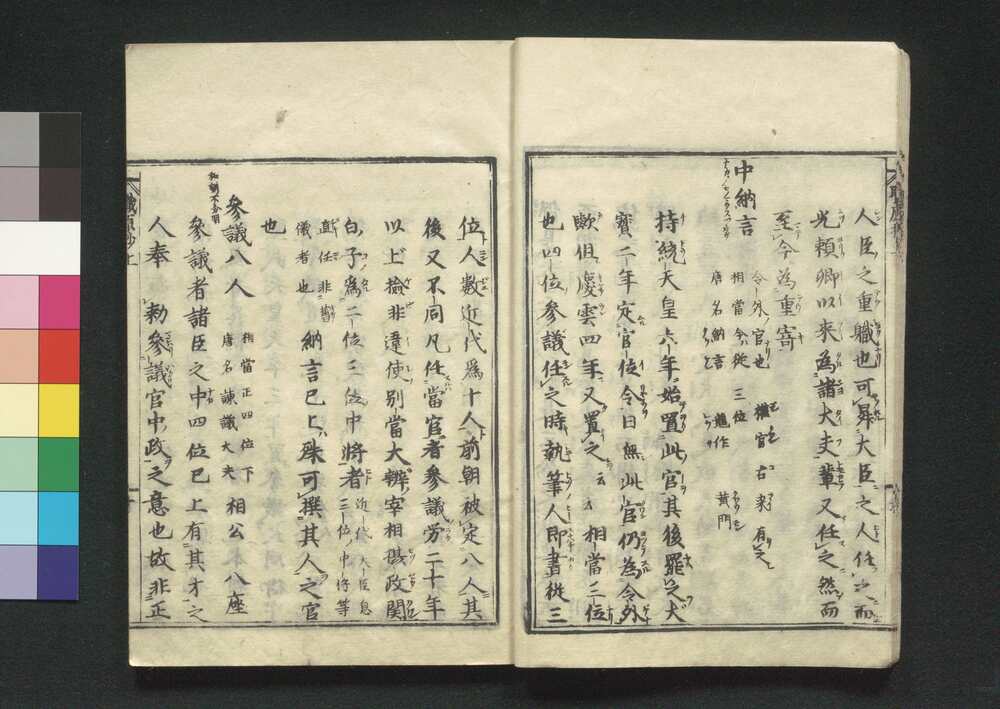 人臣之重職也可昇大臣之人任之而
光頼卿以来為諸大夫輩又任之然而
至今為重寄
中納言
令外官也 権官古来有之
相當今従三位
唐名納言 龍作 黄門
持統天皇六年始置此官其後罷之大
寳二年定官位令日無此官仍為令外
歟俱慶雲四年又置之云々相當三位
也四位参議任之時執筆人即書従三
位人數近代為十人前朝被定八人其
後又不同凡任當官者參議労二十年
以上撿非違使別當大辨宰相
白子為二位三位中將者
近代大臣息
三位中将等
任非
儀者也
納言已上殊可撰其人之官
也
參議八人
相當正四位下
唐名諌議大夫
相公 八座
參議者諸臣之中四位已上有其才之
人奉 勅參議官中政之意也故非正